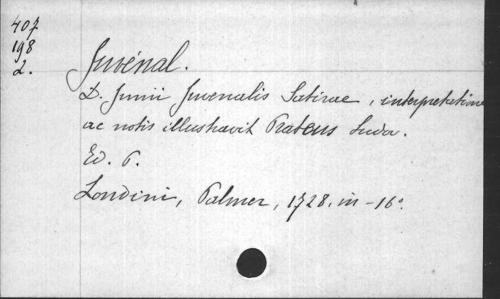 407
198
2.
Juvénal.
D. Junii Juvenalis Satirae, interpretatione
ac notis illustravit Prateus Ludov.
Ed. P.
Londini, Palmer, 1728. in-16°.